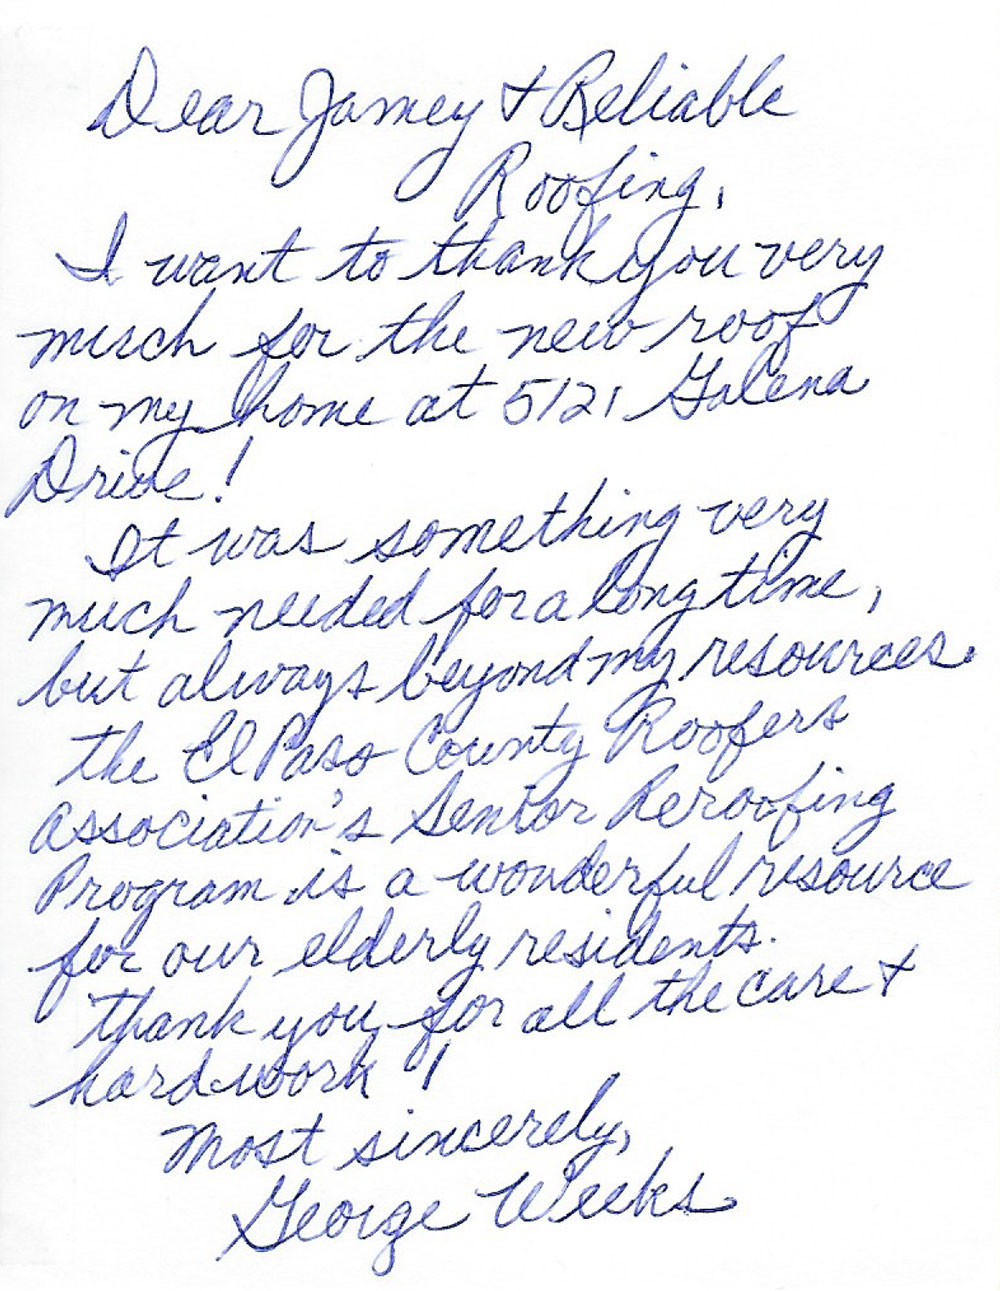 Dear Jamey & Reliable
Roofing,
I want to thank you very
much for the new roof
on my home at 5121 Galena
Drive!
It was something very
much needed for a long time,
but always beyond my resources.
the El Paso County Roofers
Association's Senior Reroofing
Program is a wonderful resource
for our elderly residents.
thank you for all the care &
hard work!
Most sincerely,
George Weeks